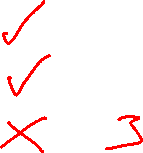 ✓
✓
✗ 3